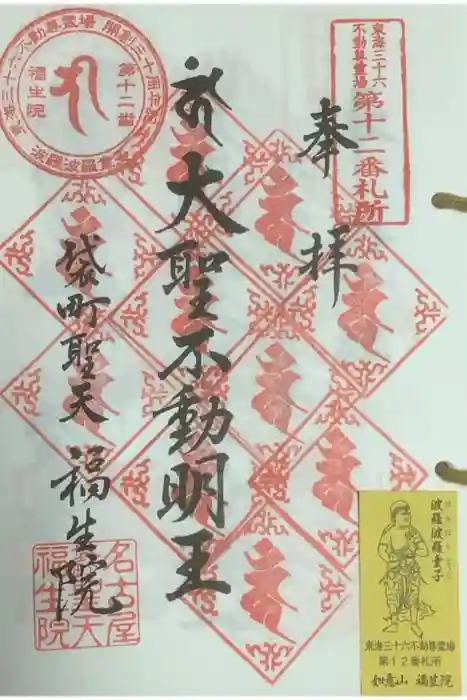 奉拝
東海三十六
不動尊霊場
第十二番札所
大聖不動明王
袋町聖天
福生院
東海三十六不動尊霊場 開創三十周年
第十二番
福生院
波羅波羅童子
名古屋
聖天
福生院
波羅波羅童子
はらはらどうじ
東海三十六不動尊霊場
第12番札所
如意山 福生院